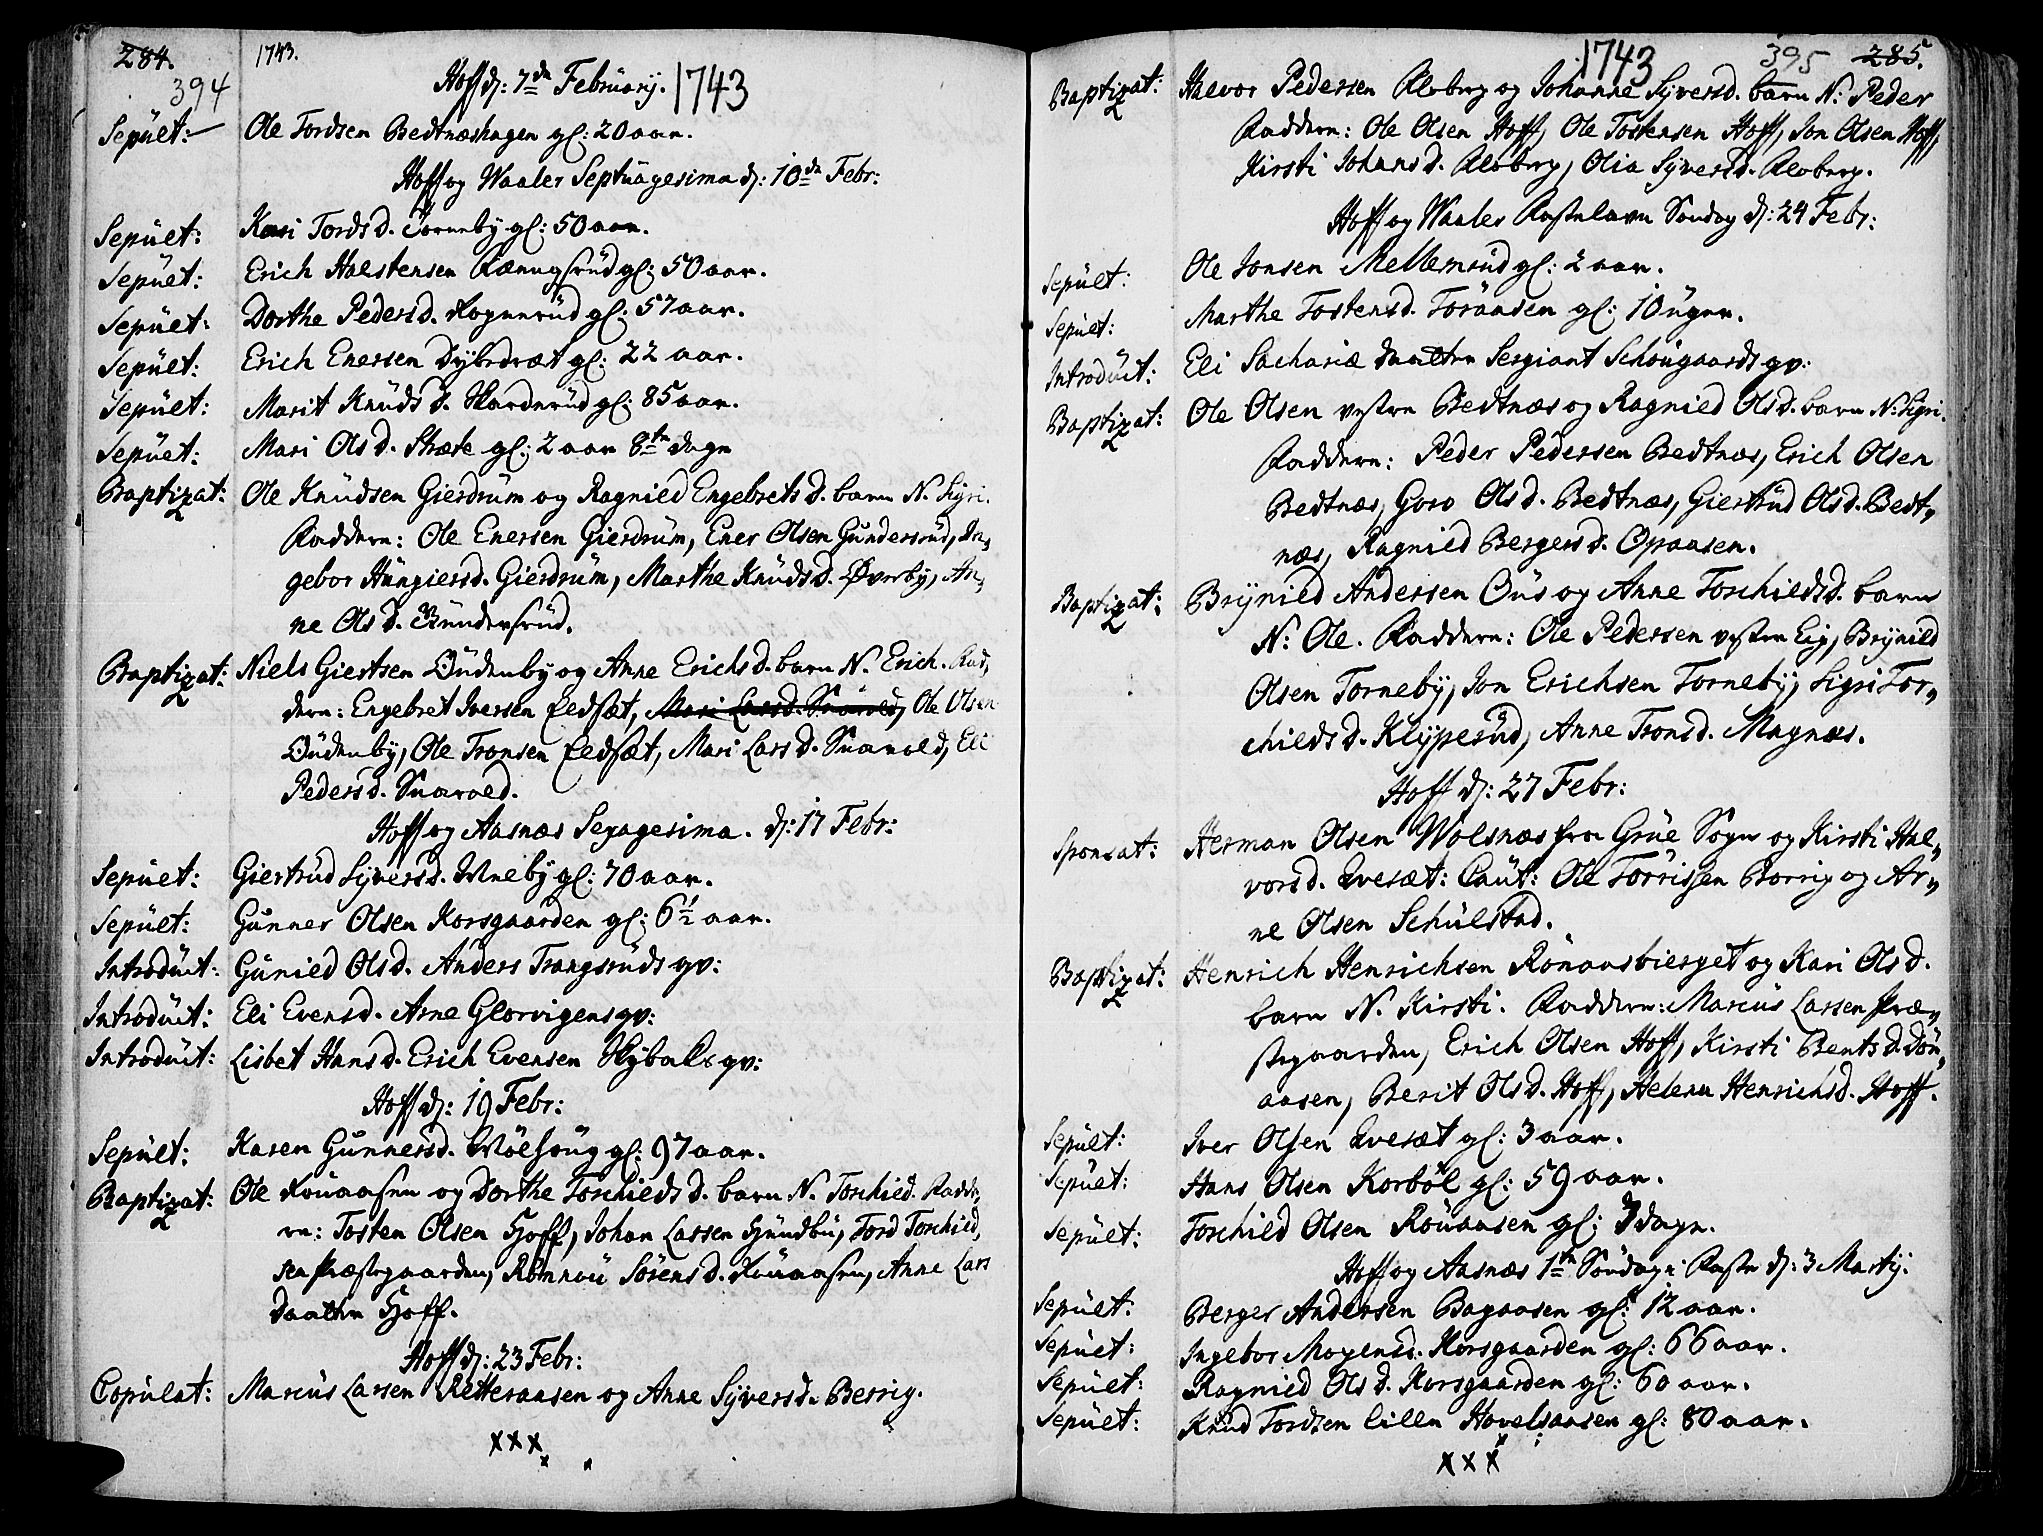 284.
394
1743.
Hoff d: 7de Februarij. 1743
Sepult: Ole Fordsen Bedtnæshagen gl: 20 aar.
Hoff og Waaler Septuagesima d: 10de Febr:
Sepult: Kari Tordsd. Torneby gl: 50 aar.
Sepult: Erich Halstensen gl: 50 aar.
Sepult: Dorthe Pedersd. Rognerud gl: 57 aar.
Sepult: Erich Enersen Dybedræt gl: 22 aar.
Sepult: Marit Knudsd. Skarderud gl: 85 aar.
Sepult: Mari Olsd. gl: 2 aar 8te dage
Baptizat: Ole Knudsen Gierdrum og Ragnied Engebretsd. barn N. Sigri.
Faddern: Ole Enersen Gierdrum, Ener Olsen Gundersrud, In,,
gebor Hungiersd. Gierdrum, Marthe Knudsd. Øverby, An,,
ne Olsd. Gundersrud.
Baptizat: Niels Giertsen Oudenby og Anne Erichsd. barn N. Erich. Fad,,
dern: Engebret Iversen Eedsæt, Mari Larsd. Snarold, Ole Olsen
Oudenby, Ole Tronsen Eedsæt, Mari Larsd. Snarold, Eli
Pedersd. Snarold.
Hoff og Aasnæs Sexagesima. d: 17 Febr:
Sepult: Giertrud Syversd. gl: 70 aar.
Sepult: Gunner Olsen Korsgaarden gl: 6½ aar.
Introduct: Gunied Olsd. Anders Trangsruds qv:
Introduct: Eli Evensd. Arne Glorvigens qv:
Introduct: Lisbet Hansd. Erich Evensen Skybaks qv:
Hoff d: 19 Febr:
Sepult: Karen Gunnersd. gl: 97 aar.
Baptizat: Ole Rouaasen og Dorthe Torchieldsd. barn N. Torchied. Fadde,,
rn: Tosten Olsen Hoff, Johan Larsen Hundbu, Tord Torchied,,
sen Præstegaarden, Rønnou Sørensd. Rouaasen, Anne Lars
Daatter Hoff.
Hoff d: 23 Febr:
Copulat: Marcus Larsen Retteraasen og Anne Syversd. Berrig.
xxx
1743 395 285.
Baptizat: Halvor Pedersen Aloberg og Johanne Syversd. barn N: Peder
Faddern: Ole Olsen Hoff, Ole Tostensen Hoff, Jon Olsen Hoff,
Kirsti Johansd. Aloberg, Olia Syversd. Aloberg.
Hoff og Waaler Fastelavn Søndag d: 24 Febr:
Sepult: Ole Jonsen Mellemrud gl: 2 aar.
Sepult: Marthe Tostensd. Toraasen gl: 10 uger.
Introduct: Eli Sachariæ Daatter Sergiant Schougaards qv:
Baptizat: Ole Olsen vestre Bedtnæs og Ragnied Olsd. barn N: Sigri.
Faddern: Peder Pedersen Bedtnæs, Erich Olsen
Bedtnæs, Goro Olsd. Bedtnæs, Giertrud Olsd. Bedt,,
næs, Ragnied Bergersd. Opaasen.
Baptizat: Brynied Andersen Ous og Anne Torchieldsd. barn
N: Ole. Faddern: Ole Pedersen vestre Eig, Brynild
Olsen Torneby, Jon Erichsen Torneby, Sigri Tor,,
chieldsd. Klyperud, Anne Tronsd. Magnæs.
Hoff d: 27 Febr:
Sponsat: Herman Olsen Wolsnæs fra Grue Sogn og Kirsti Hal,,
vorsd. Qvesæt: Caut: Ole Torrissen Borrig og Ar,,
ne Olsen Schulstad.
Baptizat: Henrich Henrichsen Rönaasbierget og Kari Olsd.
barn N. Kirsti. Faddern: Marcus Larsen Præ,,
stegaarden, Erich Olsen Hoff, Kirsti Bentsd. Dön,,
aasen, Berit Olsd. Hoff, Helena Henrichsd. Hoff.
Sepult: Iver Olsen Qvesæt gl: 3 aar.
Sepult: Hans Olsen Korböl gl: 59 aar.
Sepult: Torchild Olsen Rouaasen gl: 7 dage.
Hoff og Aasnæs 1te Søndag i Faste d: 3 Martij.
Sepult: Berger Andersen Bagaasen gl: 12 aar.
Sepult: Ingebor Mogensd. Korsgaarden gl: 66 aar.
Sepult: Ragnied Olsd. Korsgaarden gl: 60 aar.
Sepult: Knud Tordsen lille Havelsaasen gl: 80 aar.
xxx